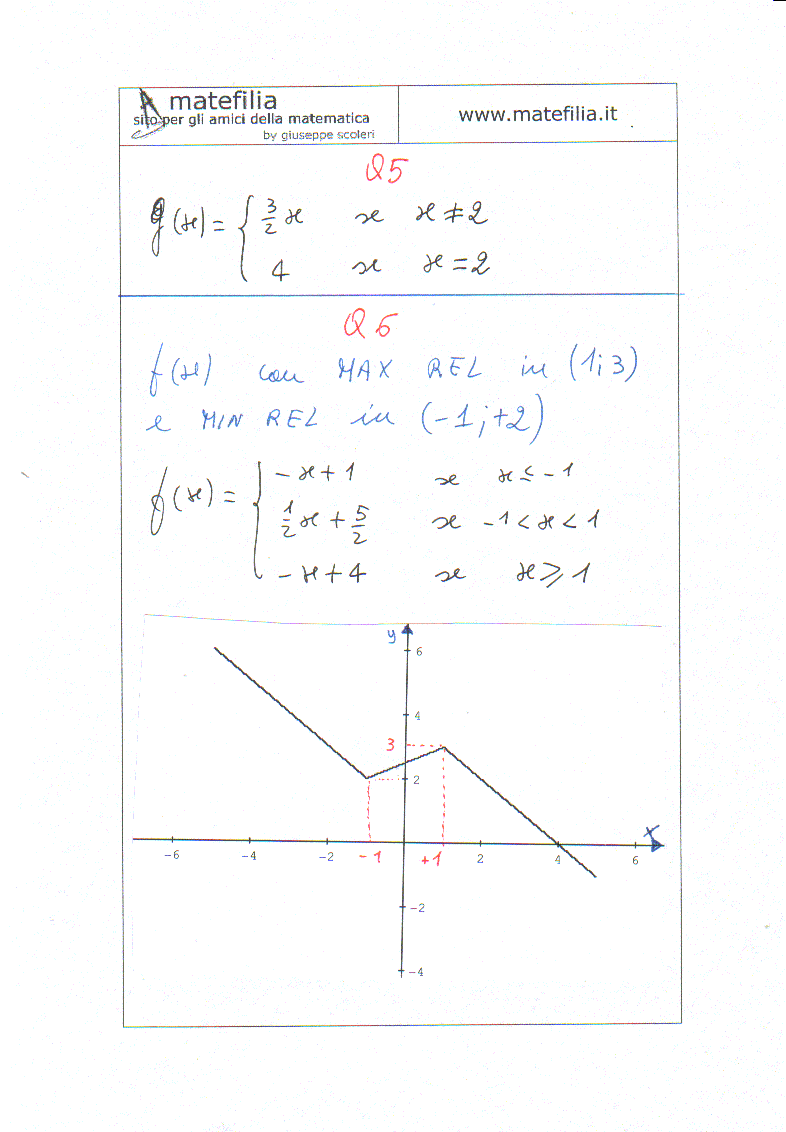 matefilia
sito per gli amici della matematica
by giuseppe scoleri
www.matefilia.it
Q5
g(x) = { 3/2 x se x ≠ 2
4 se x = 2
Q6
f(x) con MAX REL in (1; 3)
e MIN REL in (-1; +2)
f(x) = { -x + 1 se x ≤ -1
1/2 x + 5/2 se -1 < x < 1
-x + 4 se x ≥ 1
y
6
4
3
2
x
-6 -4 -2 -1 +1 2 4 6
-2
-4